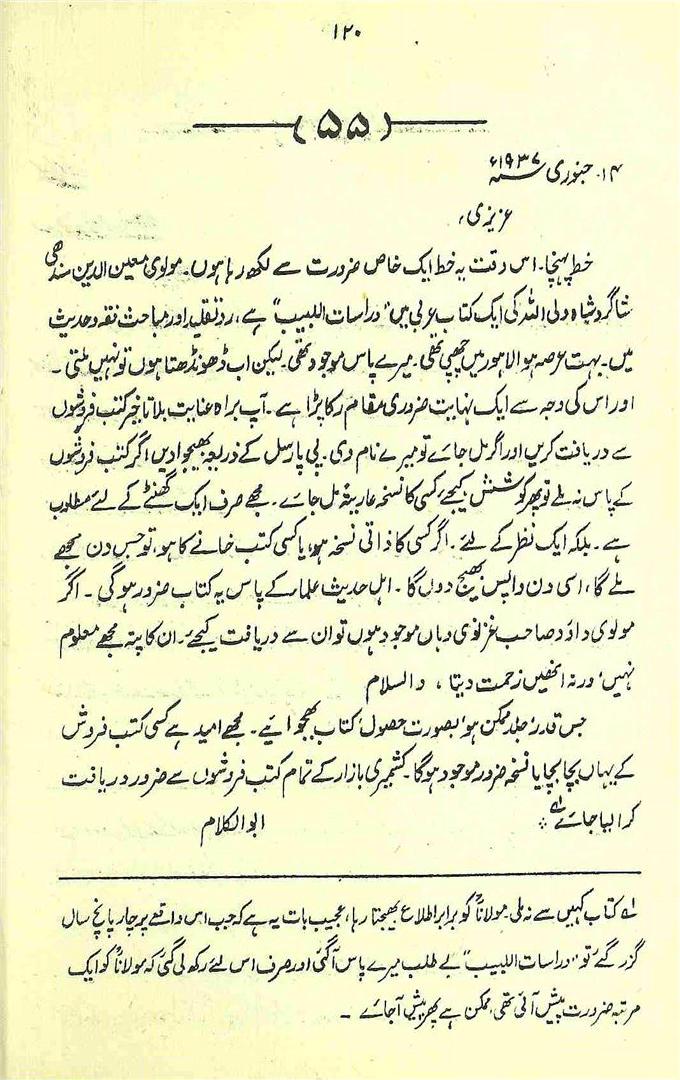 ۱۲۰
(۵۵)
۱۴۔ جنوری ۱۹۳۷ء
عزیزی،
خط پہنچا۔ اس وقت یہ خط ایک خاص ضرورت سے لکھ رہا ہوں۔ مولوی معین الدین سندھی
شاگرد شاہ ولی اللہ کی ایک کتاب عربی میں "دراسات اللبیب" ہے، رد تقلید اور مباحث فقہ و حدیث
میں۔ بہت عرصہ ہوا لاہور میں چھپی تھی۔ میرے پاس موجود تھی۔ لیکن اب ڈھونڈھتا ہوں تو نہیں ملتی۔
اور اس کی وجہ سے ایک نہایت ضروری مقام رکا پڑا ہے۔ آپ براہ عنایت بلا تاخیر کتب فروشوں
سے دریافت کریں اور اگر مل جائے تو میرے نام وی۔ پی پارسل کے ذریعہ بھیجوا دیں اگر کتب فروشوں
کے پاس نہ ملے تو پھر کوشش کیجئے، کسی کا نسخہ عاریۃً مل جائے۔ مجھے صرف ایک گھنٹے کے لئے مطلوب
ہے۔ بلکہ ایک نظر کے لئے۔ اگر کسی کا ذاتی نسخہ ہو، یا کسی کتب خانے کا ہو، تو جس دن مجھے
ملے گا، اسی دن واپس بھیج دوں گا۔ اہل حدیث علماء کے پاس یہ کتاب ضرور ہوگی۔ اگر
مولوی داؤد صاحب غزنوی وہاں موجود ہوں تو ان سے دریافت کیجئے۔ ان کا پتہ مجھے معلوم
نہیں، ورنہ انھیں زحمت دیتا، والسلام
جس قدر جلد ممکن ہو، بصورت حصول، کتاب بھجوائیے۔ مجھے امید ہے کسی کتب فروش
کے یہاں بچا بچایا نسخہ ضرور موجود ہوگا۔ کشمیری بازار کے تمام کتب فروشوں سے ضرور دریافت
کرا لیا جائے ؂۱ ابوالکلام
؂۱ کتاب کہیں سے نہ ملی۔ مولاناؒ کو برابر اطلاع بھیجتا رہا، عجیب بات یہ ہے کہ جب اس واقعے پر چار پانچ سال
گزر گئے تو "دراسات اللبیب" بے طلب میرے پاس آگئی اور صرف اس لئے رکھ لی گئی کہ مولاناؒ کو ایک
مرتبہ ضرورت پیش آئی تھی، ممکن ہے پھر پیش آجائے۔